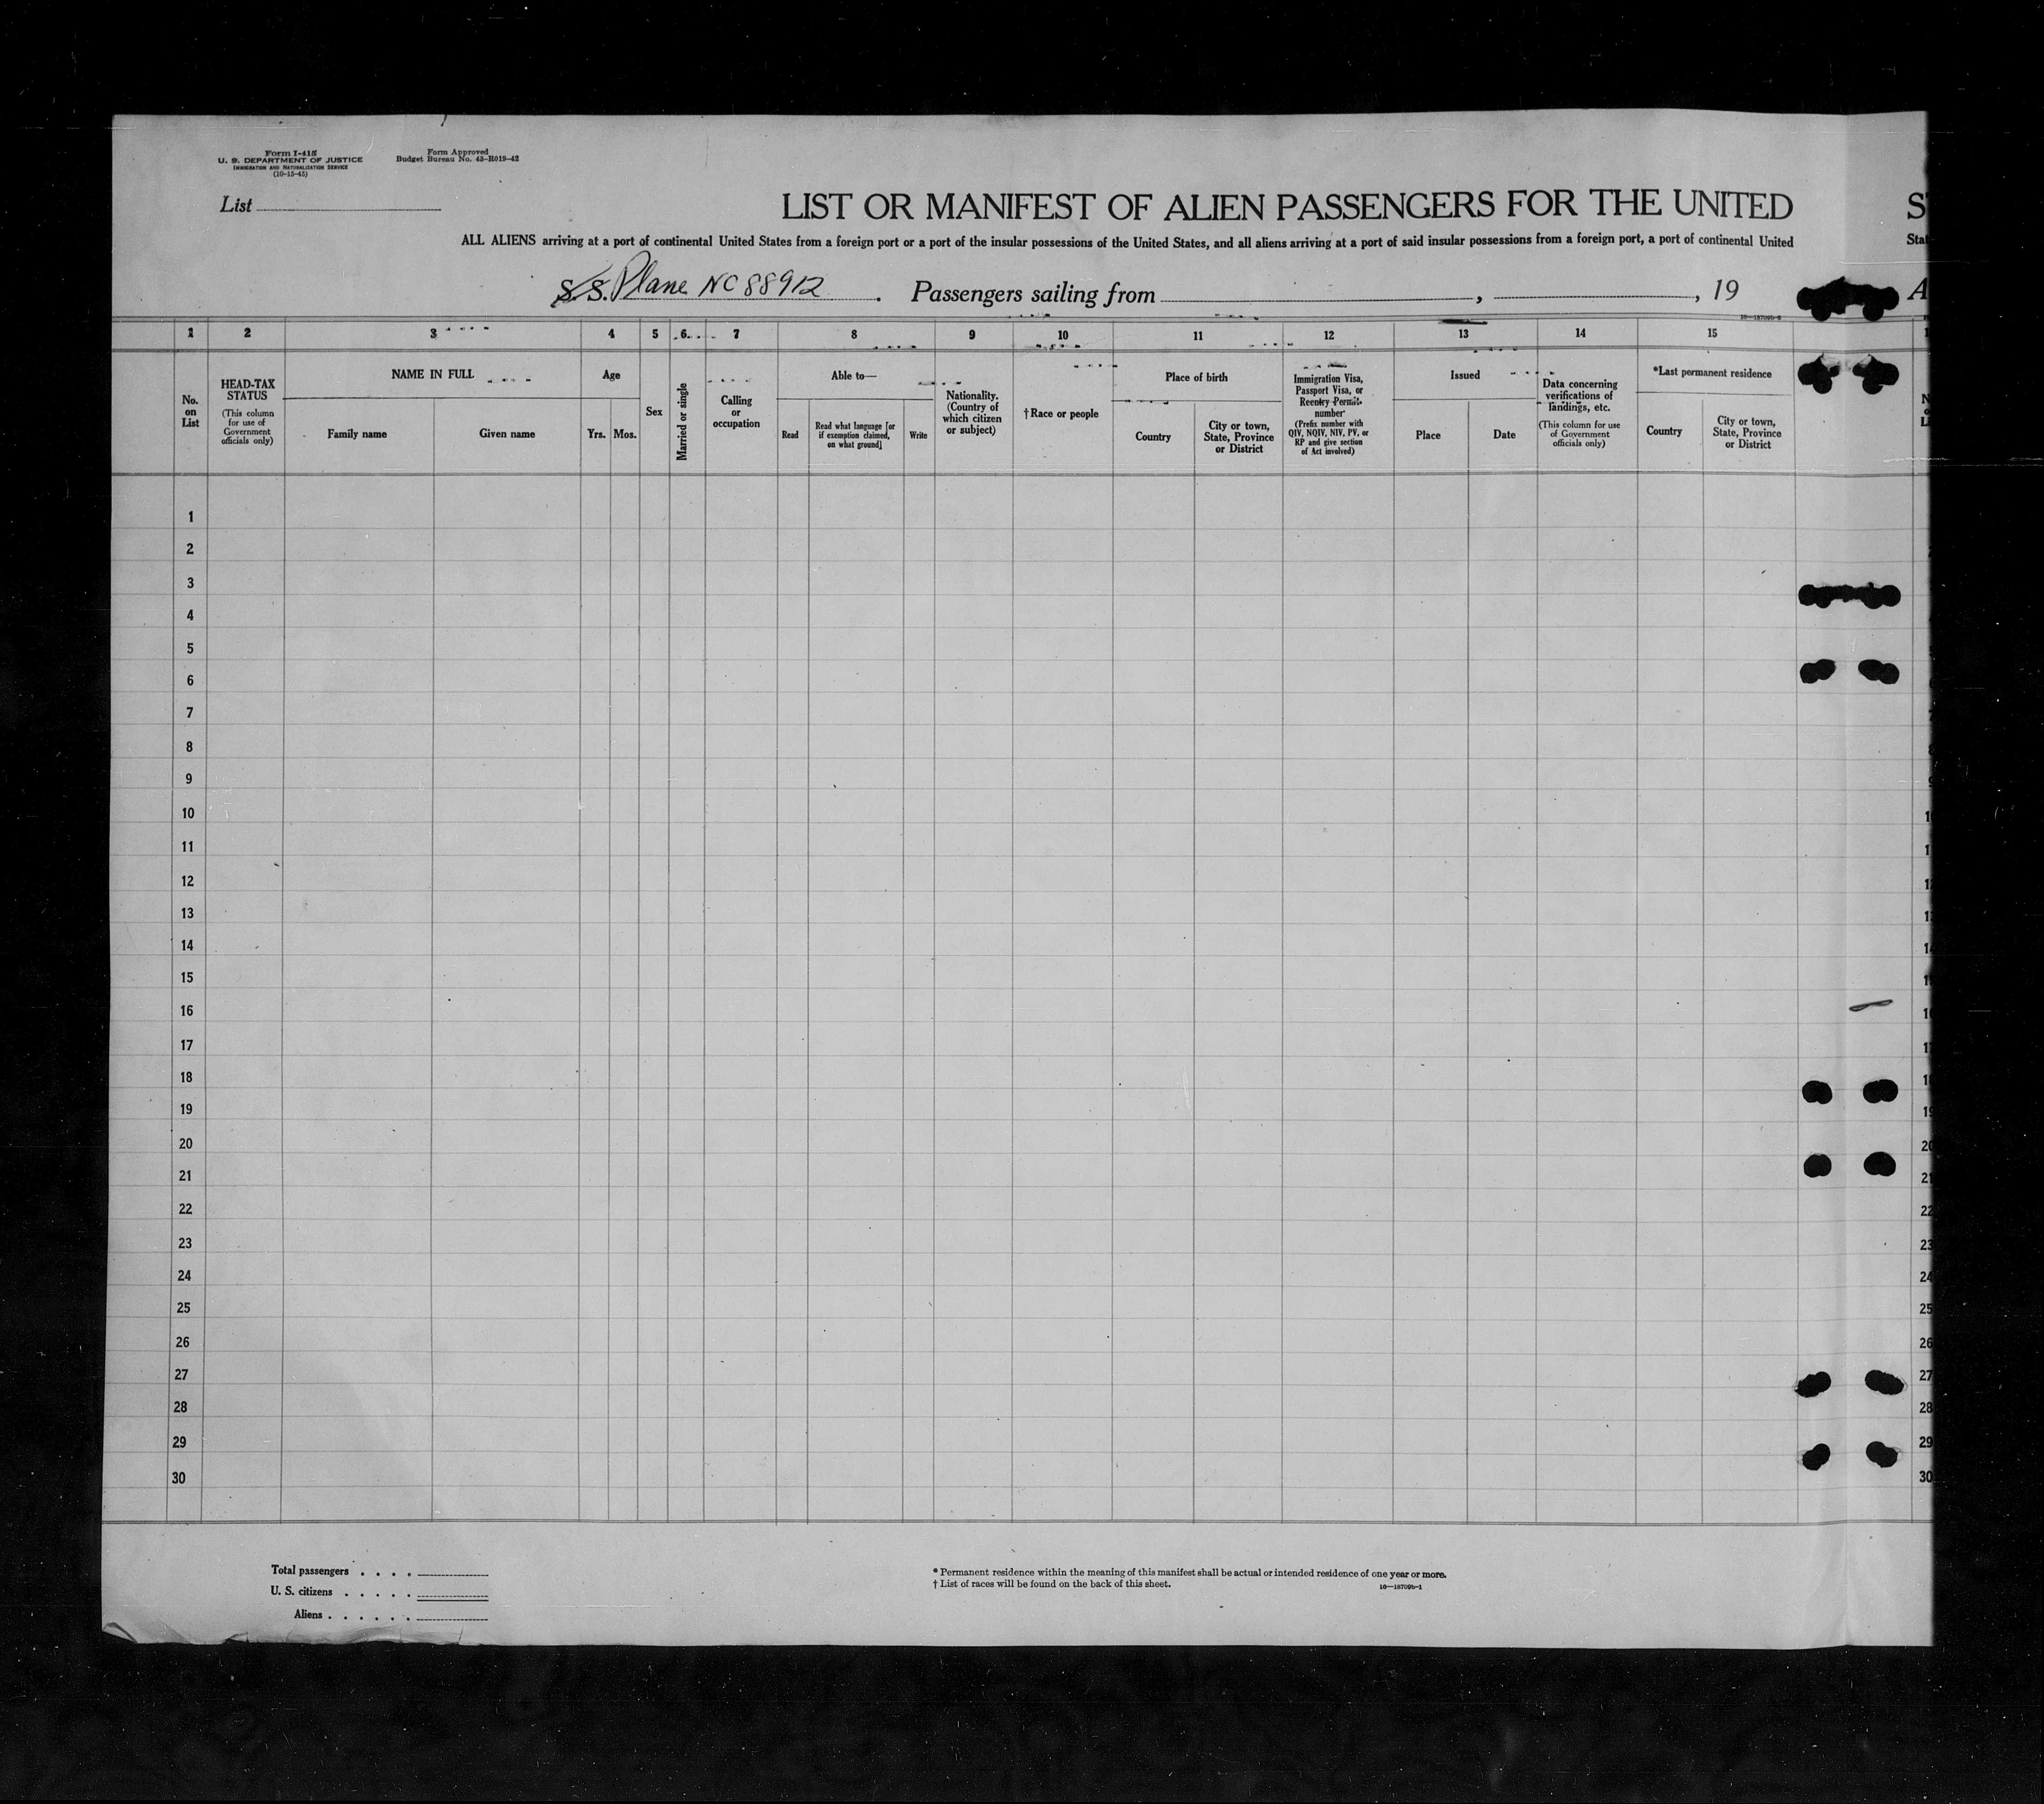 Form I-415
U. S. DEPARTMENT OF JUSTICE
IMMIGRATION AND NATURALIZATION SERVICE
(10-15-45)
Form Approved
Budget Bureau No. 43-R019-42
List
LIST OR MANIFEST OF ALIEN PASSENGERS FOR THE UNITED
ALL ALIENS arriving at a port of continental United States from a foreign port or a port of the insular possessions of the United States, and all aliens arriving at a port of said insular possessions from a foreign port, a port of continental United
S. S. Plane NC 88912 . Passengers sailing from , , 19
1 2 3 4 5 6 7 8 9 10 11 12 13 14 15
No. on List
HEAD-TAX STATUS
(This column for use of Government officials only)
NAME IN FULL
Family name
Given name
Age
Yrs.
Mos.
Sex
Married or single
Calling or occupation
Able to—
Read
Read what language [or if exemption claimed, on what ground]
Write
Nationality. (Country of which citizen or subject)
†Race or people
Place of birth
Country
City or town, State, Province or District
Immigration Visa, Passport Visa, or Reentry Permit number
(Prefix number with QIV, NQIV, NIV, PV, or RP and give section of Act involved)
Issued
Place
Date
Data concerning verifications of landings, etc.
(This column for use of Government officials only)
*Last permanent residence
Country
City or town, State, Province or District
1
2
3
4
5
6
7
8
9
10
11
12
13
14
15
16
17
18
19
20
21
22
23
24
25
26
27
28
29
30
20
21
22
23
24
25
26
27
28
29
30
Total passengers . . . .
U. S. citizens . . . . .
Aliens . . . . . .
* Permanent residence within the meaning of this manifest shall be actual or intended residence of one year or more.
† List of races will be found on the back of this sheet.
16—18709b-1